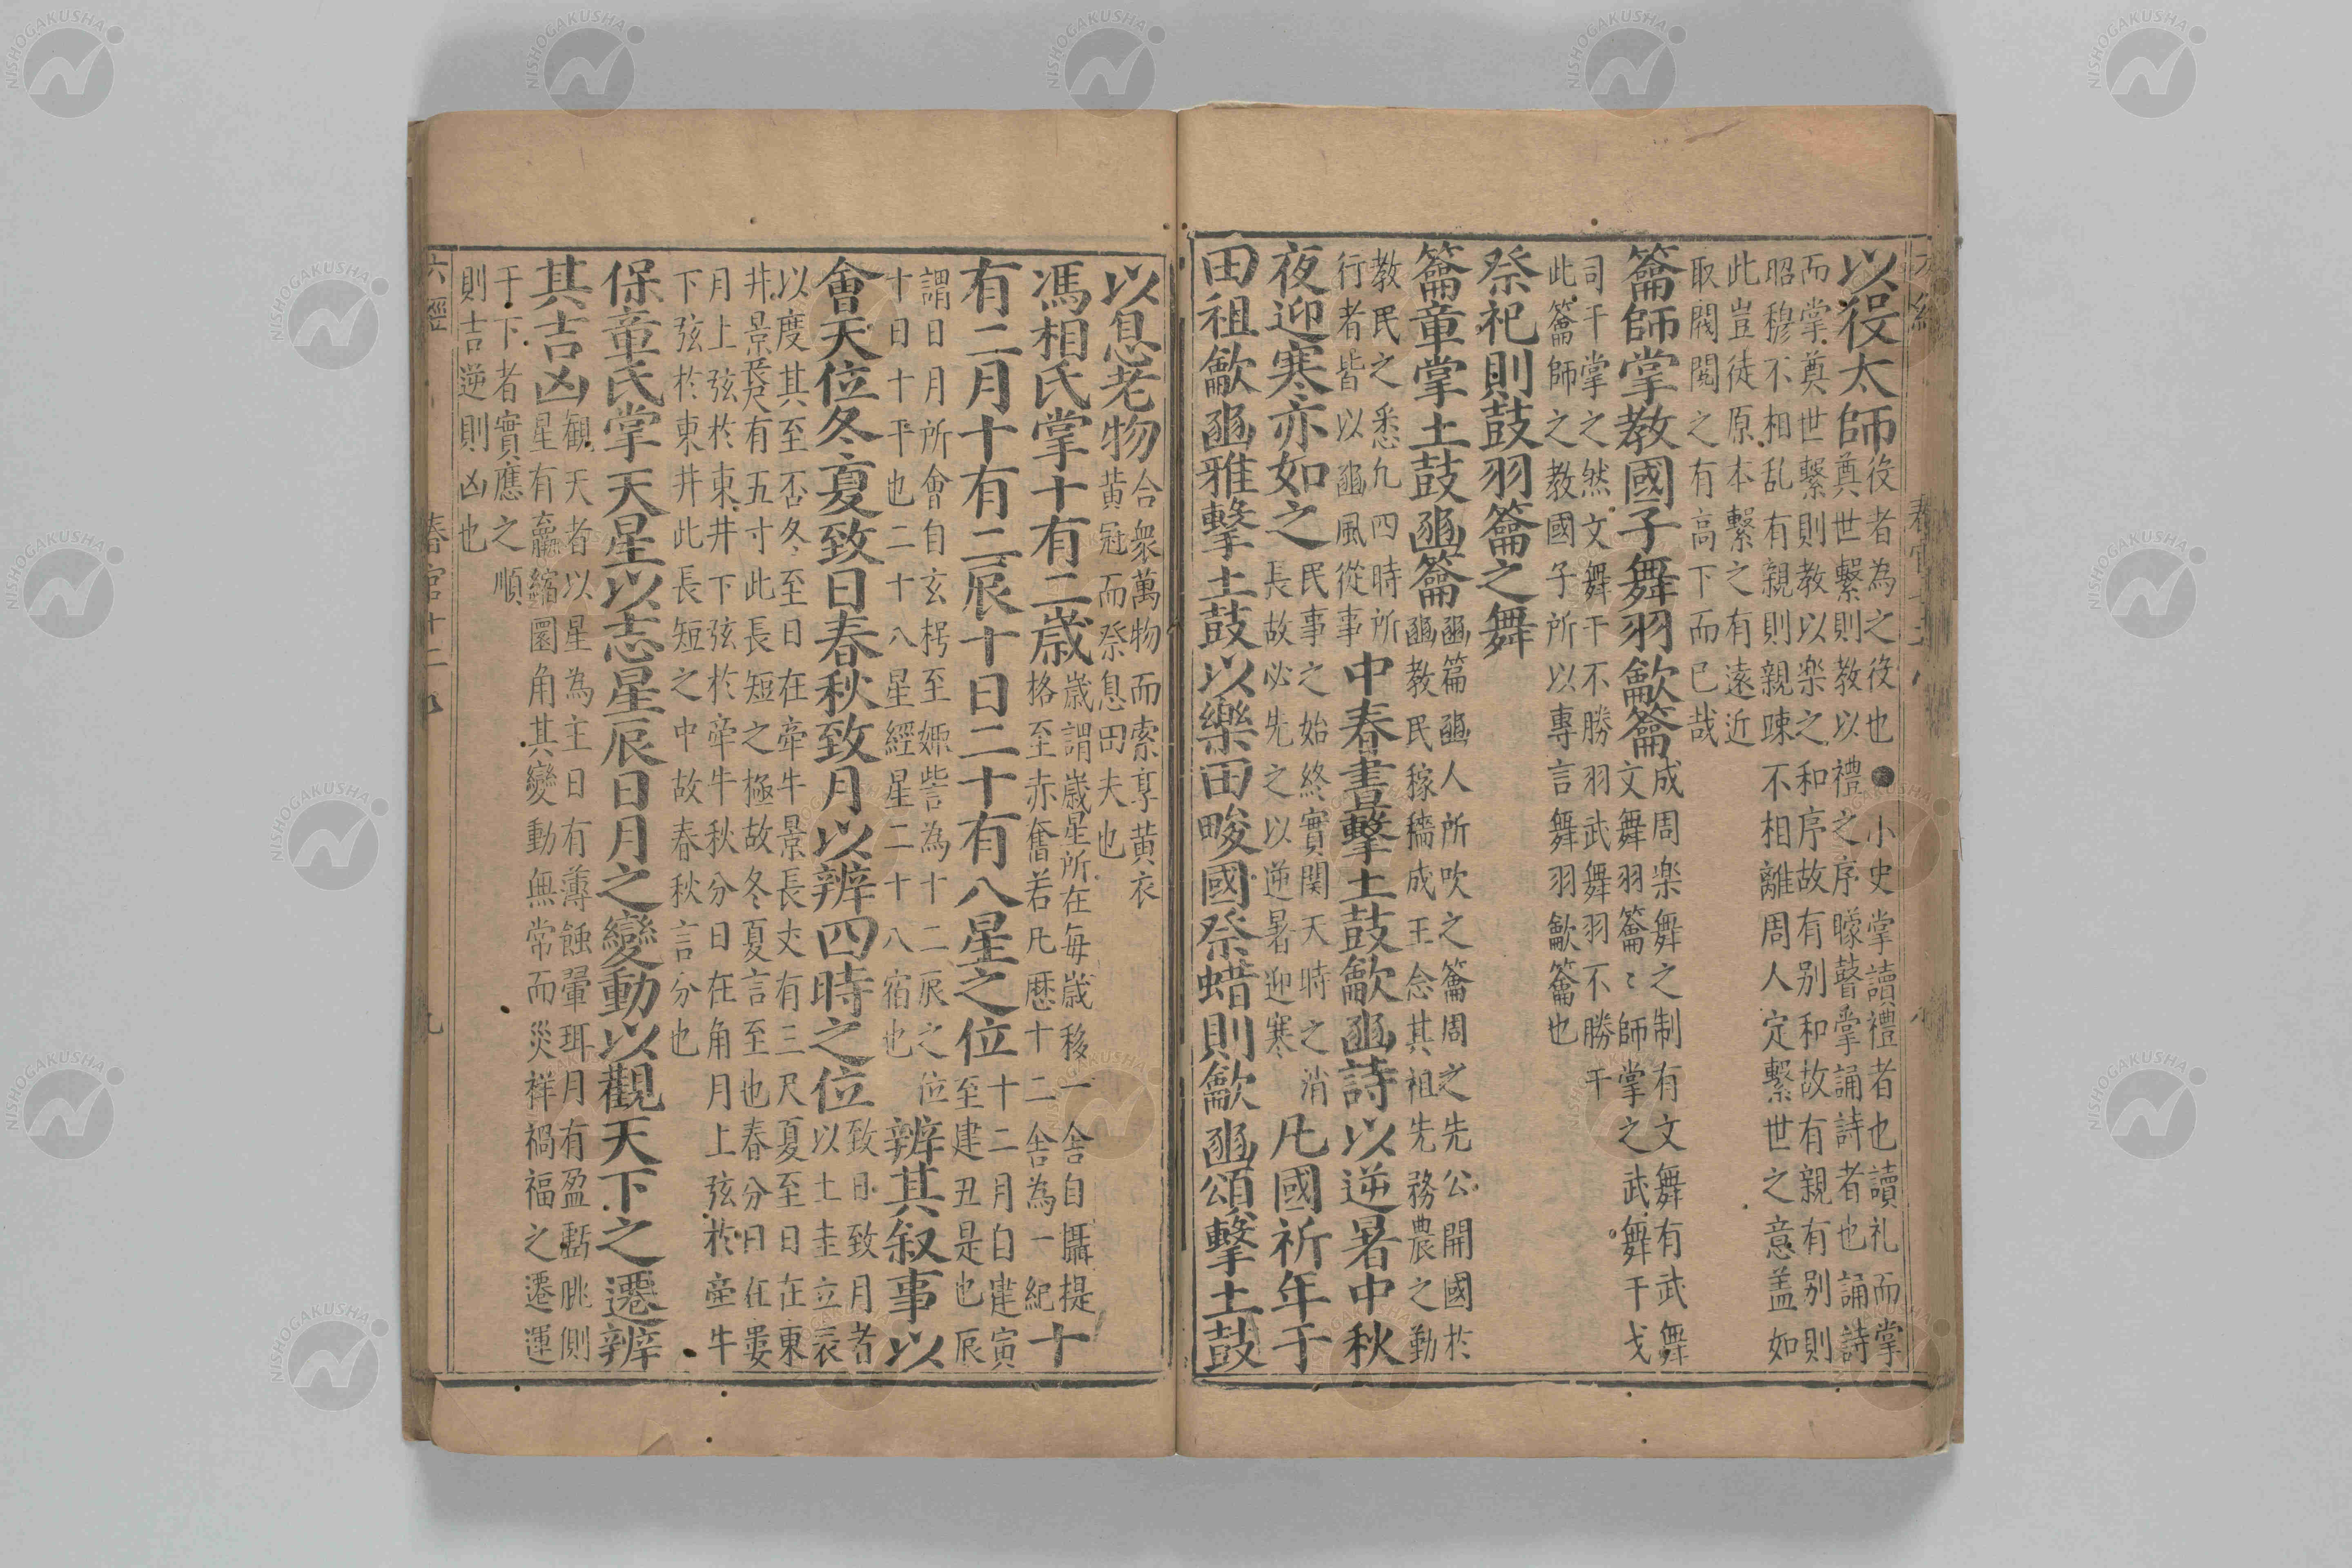 以役太師役者為之役也●小史掌讀禮者也讀礼而掌
奠世繫則教以禮之序瞍瞽掌誦詩者也誦詩
而掌奠世繫則教以楽之和序故有别和故有親有别則
昭穆不相乱有親則親踈不相離周人定繫世之意盖如
此豈徒原本繫之有遠近
取閥閱之有高下而已哉
籥師掌教國子舞羽龡籥成周楽舞之制有文舞有武舞
文舞羽籥〻師掌之武舞干戈
司干掌之然文舞干不勝羽武舞羽不勝干
此籥師之教國子所以專言舞羽龡籥也
祭祀則鼓羽籥之舞
籥章掌土鼓豳籥豳篇豳人所吹之籥周之先公開國於
豳教民稼穡成王念其祖先務農之勤
教民之悉凢四時所
行者皆以豳風從事
中春晝擊土鼓龡豳詩以逆暑中秋
夜迎寒亦如之民事之始終實関天時之消
長故必先之以逆暑迎寒
凡國祈年于
田祖龡豳雅擊土鼓以樂田畯國祭蜡則龡豳頌擊土鼓
以息老物合衆萬物而索享黄衣
黄冠而祭息田夫也
馮相氏掌十有二歳歳謂嵗星所在每歳移一舎自攝提
格至赤奮若凡歷十二舎為一紀
十
有二月十有二辰十日二十有八星之位十二月自建寅
至建丑是也辰
謂日月所會自玄枵至娵訾為十二辰之位
十日十干也二十八星經星二十八宿也
辨其叙事以
會天位冬夏致日春秋致月以辨四時之位致日致月者
以土圭立表
以度其至否冬至日在牽牛景長丈有三尺夏至日在東
井景長尺有五寸此長短之極故冬夏言至也春分日在婁
月上弦於東井下弦於牽牛秋分日在角月上弦於牽牛
下弦於東井此長短之中故春秋言分也
保章氏掌天星以志星辰日月之變動以觀天下之遷辨
其吉凶觀天者以星為主日有薄蝕暈珥月有盈虧朓側
星有羸縮圜角其變動無常而災祥禍福之遷運
于下者實應之順
則吉逆則凶也
六經
春官十二
九